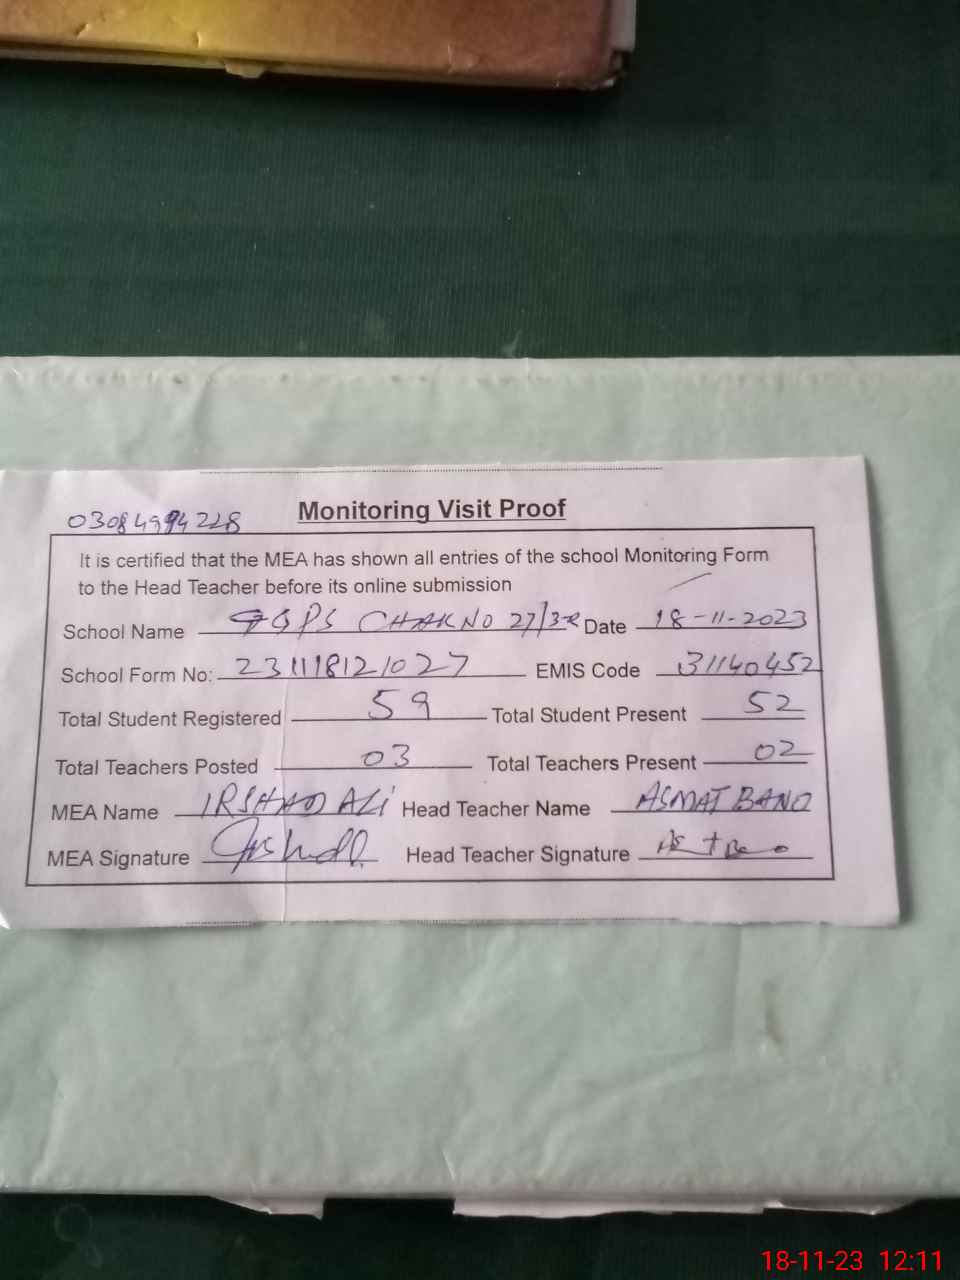 Monitoring Visit Proof
03084994228
It is certified that the MEA has shown all entries of the school Monitoring Form
to the Head Teacher before its online submission
School Name GGPS CHAK NO 27/3R Date 18-11-2023
School Form No: 231118121027 EMIS Code 31140452
Total Student Registered 59 Total Student Present 52
Total Teachers Posted 03 Total Teachers Present 02
MEA Name IRSHAD ALI Head Teacher Name ASMAT BANO
MEA Signature Head Teacher Signature
18-11-23 12:11